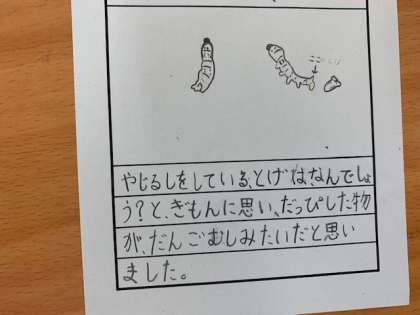 やじるしをしている、とげは、なんでしょ
う?と、ぎもんに思い、だっぴした物
が、だんごむしみたいだと思い
ました。